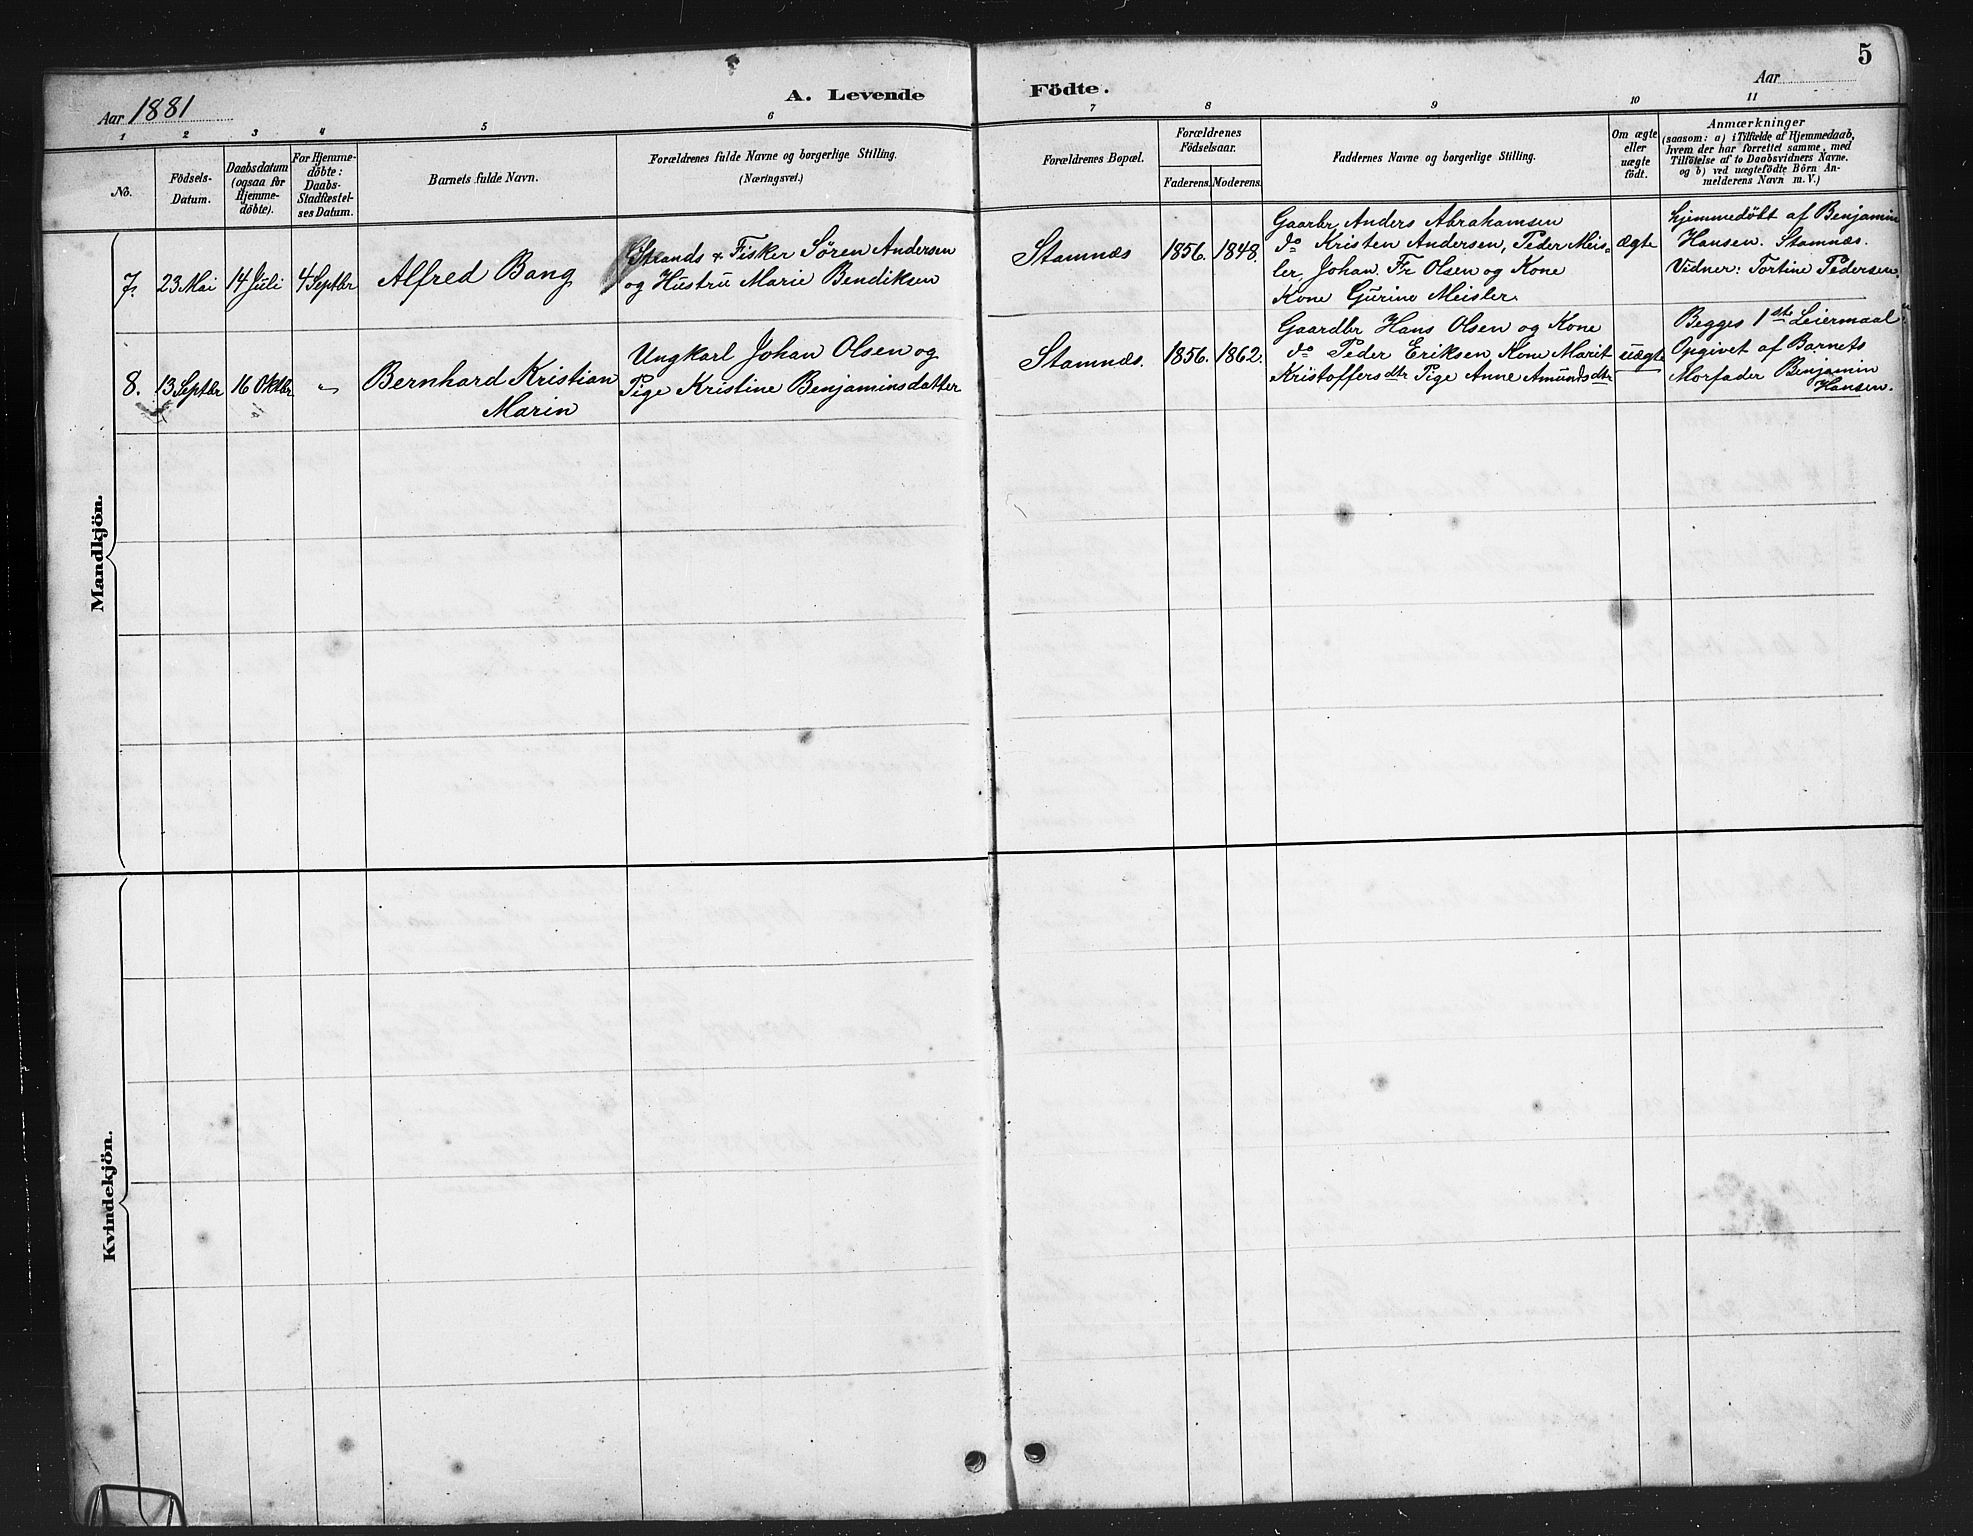 5
Aar 1881
A. Levende Födte.
Aar
1 2 3 4 5 6 7 8 9 10 11
No.
Födsels-
Datum.
Daabsdatum
(ogsaa for
Hjemme-
döbte).
For Hjemme-
döbte:
Daabs-
Stadfæstel-
ses Datum.
Barnets fulde Navn.
Forældrenes fulde Navne og borgerlige Stilling.
(Næringsvei.)
Forældrenes Bopæl.
Forældrenes
Födselsaar.
Faderens. Moderens.
Faddernes Navne og borgerlige Stilling.
Om ægte
eller
uægte
födt.
Anmærkninger
(saasom: a) i Tilfælde af Hjemmedaab,
hvem der har forrettet samme, med
Tilföielse af to Daabsvidners Navne.
og b) ved uægtefödte Börn An-
melderens Navn m. V.)
Mandkjön.
7. 23 Mai 14 Juli 4 Septbr Alfred Bang
Strands & Fisker Sören Andersen
og Hustru Marie Bendiksen
Stamnæs 1856. 1848.
Gaarbr Anders Abrahamsen
do Kristen Andersen, Peder Meis-
ler, Johan. Fr Olsen og Kone
Kone Gurine Meisler.
ægte
hjemmedöbt af Benjamin
Hansen. Stamnæs.
Vidner: Tortine Pedersen.
8. 13 Septbr 16 Oktbr " Bernhard Kristian
Marin
Ungkarl Johan Olsen og
Pige Kristine Benjaminsdatter
Stamnæs. 1856. 1862.
Gaardbr Hans Olsen og Kone
do Peder Eriksen Kone Marit
Kristoffersdtr Pige Anne Amundsdtr
uægte
Begges 1ste Leiermaal
Opgivet af Barnets
Morfader Benjamin
Hansen.
Kvindekjön.